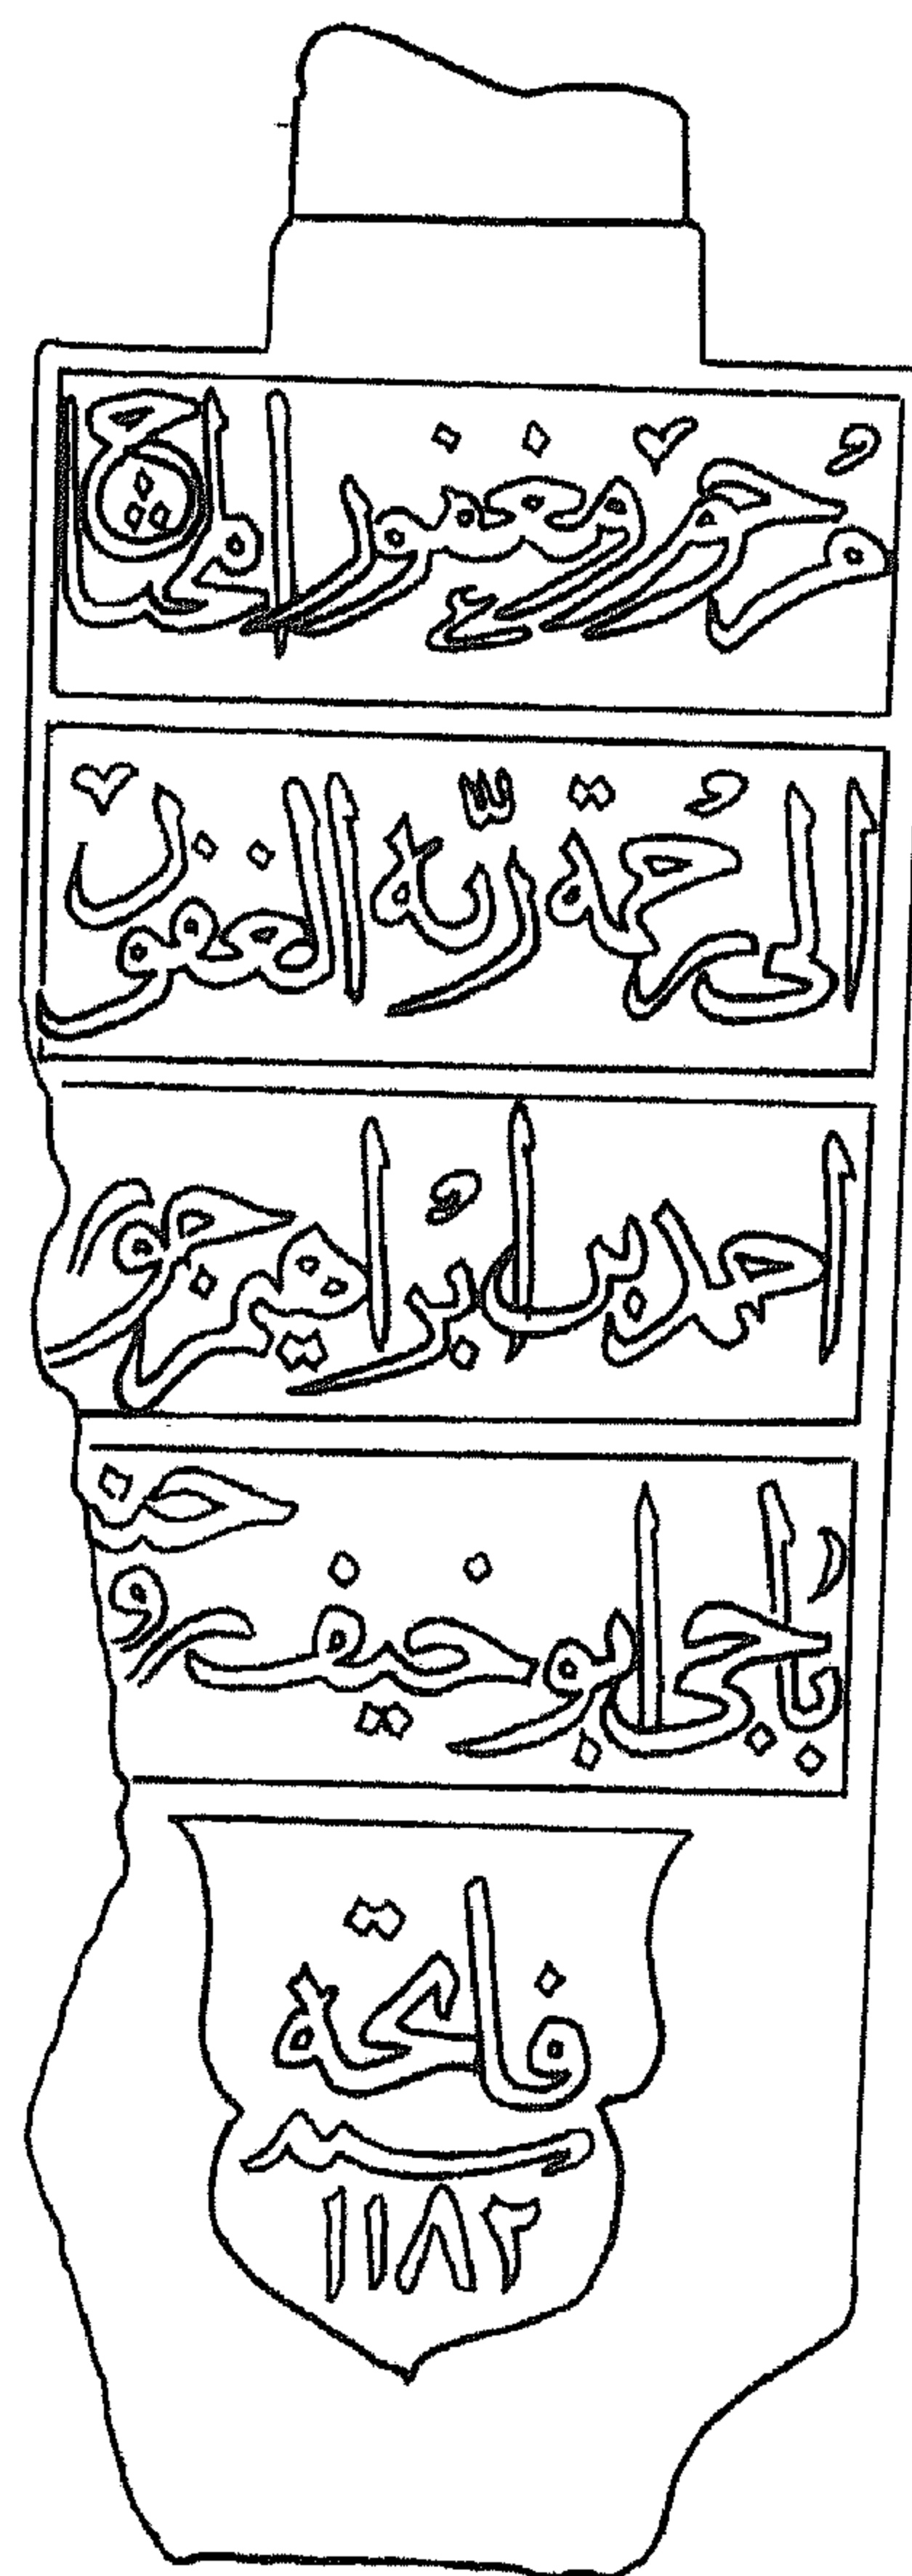 مرحوم مغفور المحتاج
الى رحمة ربه الغفور
احمد بن ابراهيم
باجى ابو خيف
فاتحة
سنة
١١٨٢